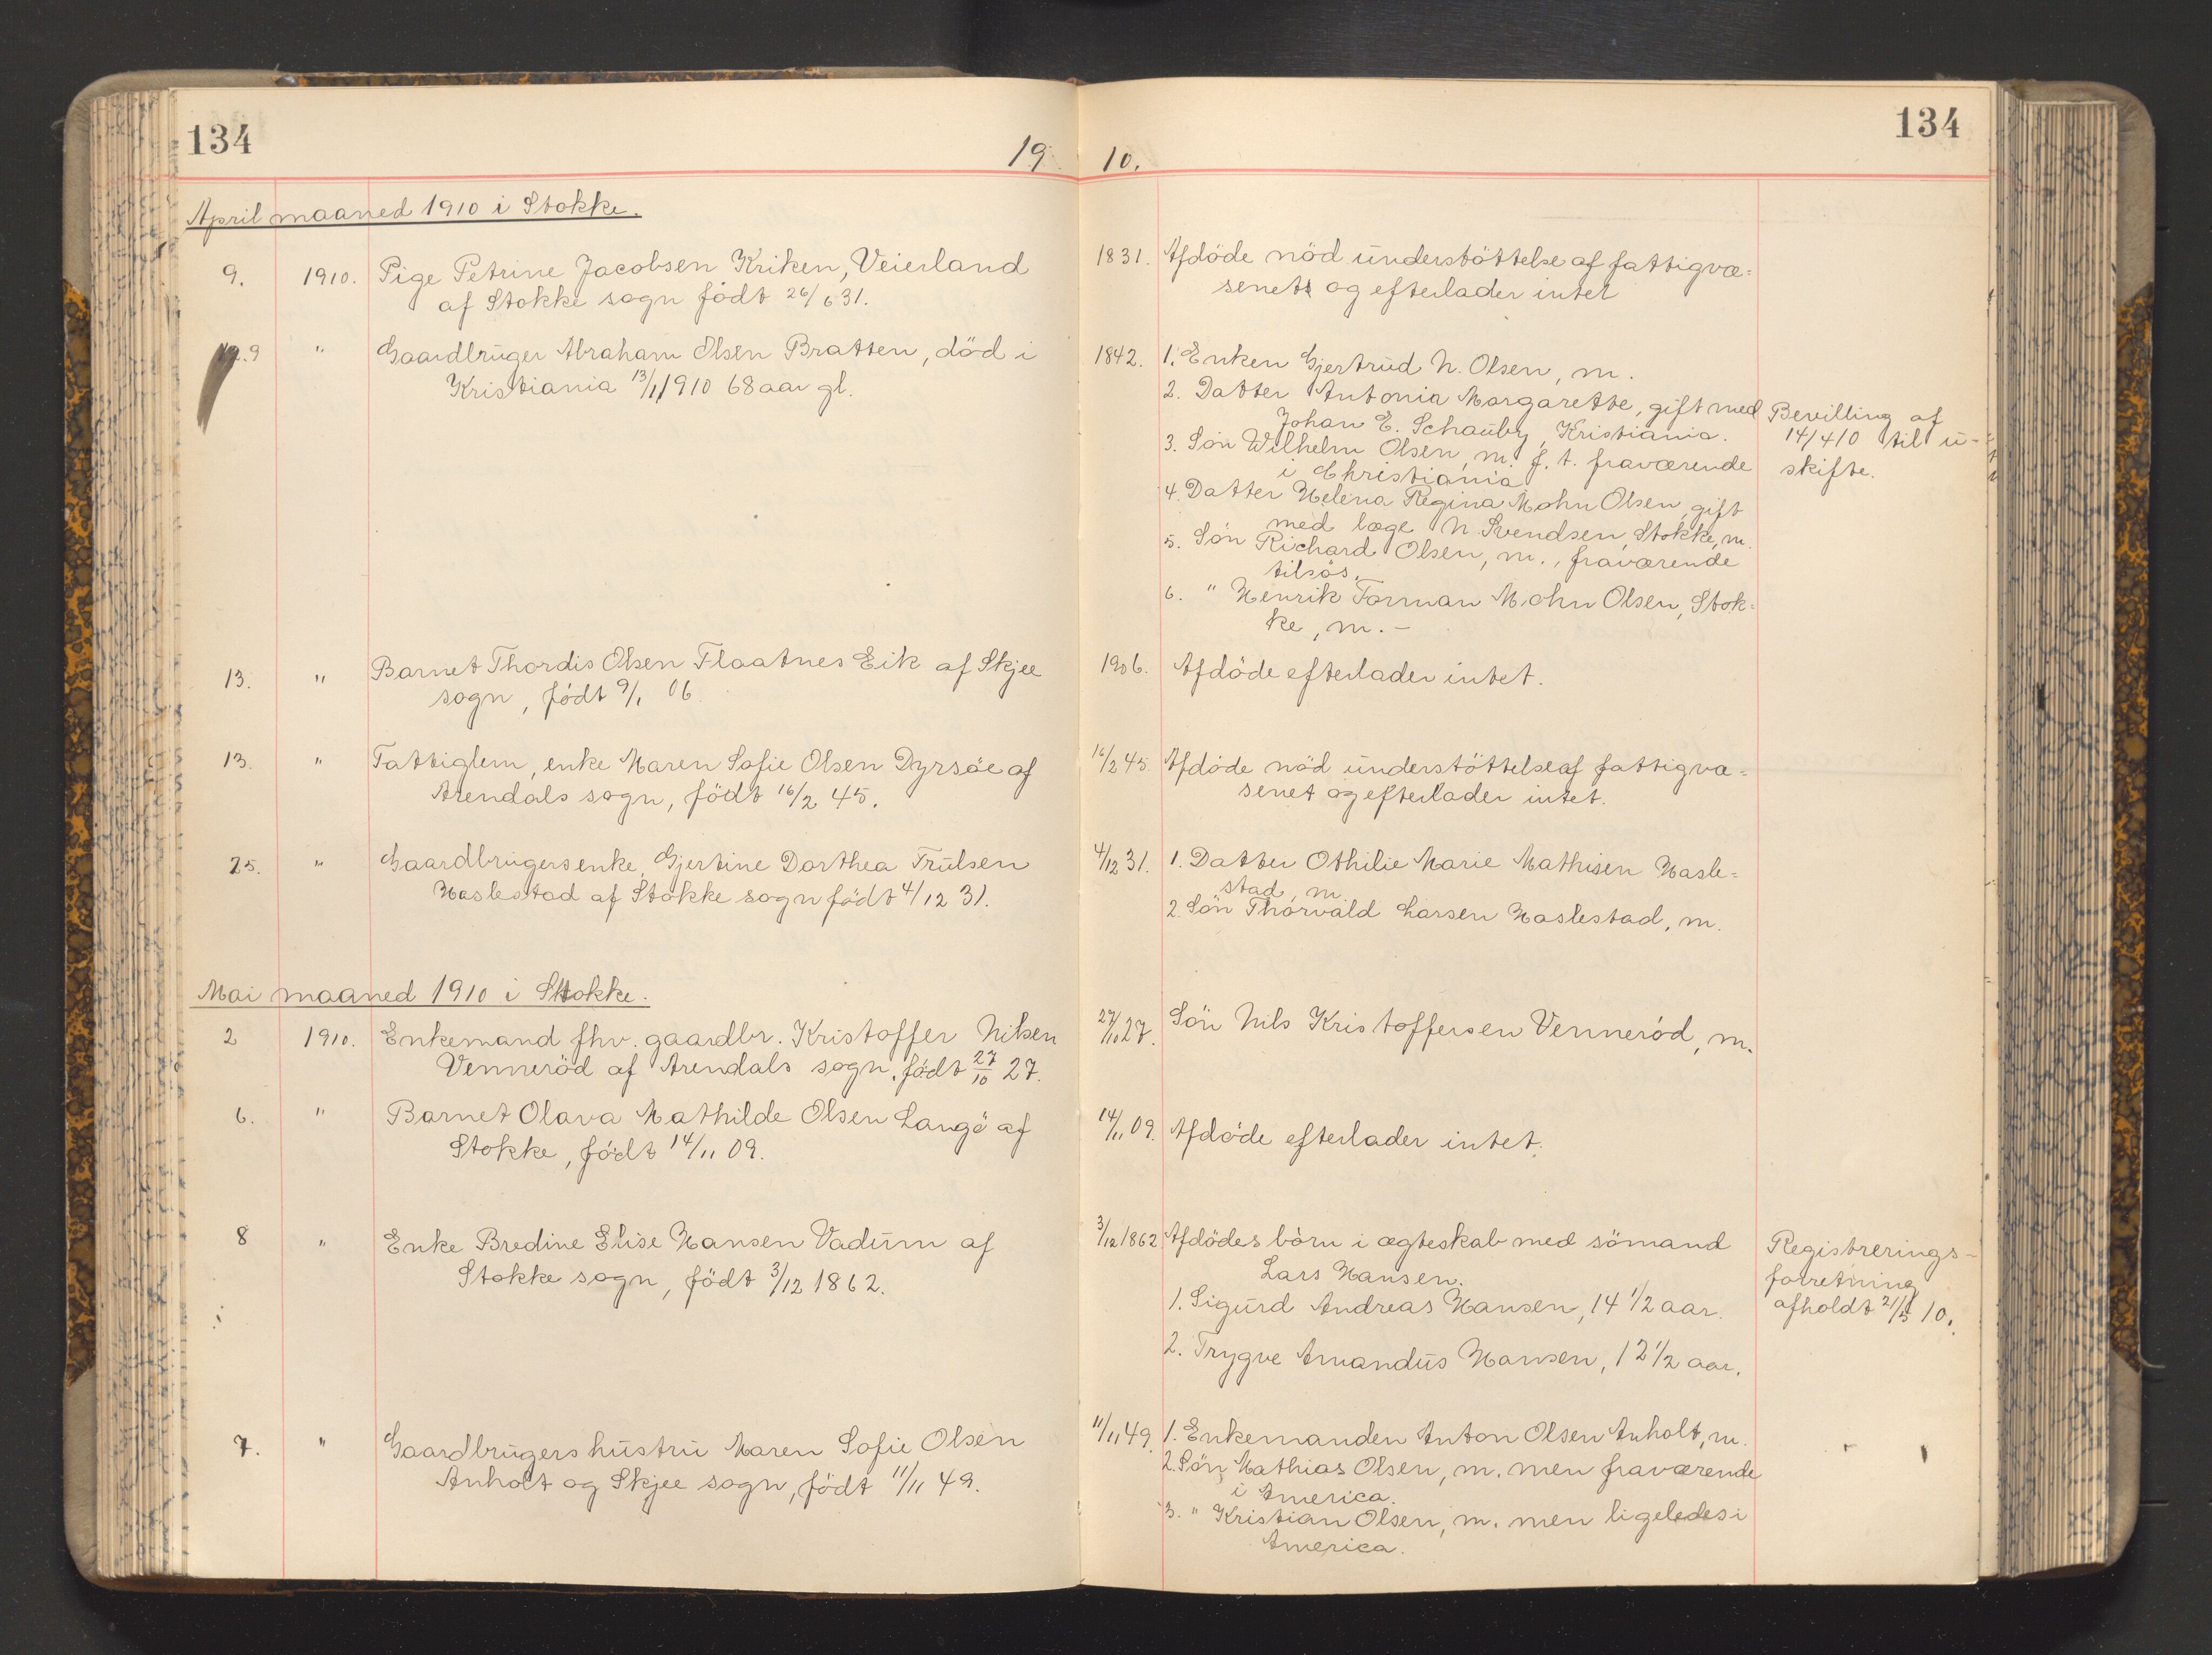 134
19
10.
134
April maaned 1910 i Stokke.
9. 1910. Pige Petrine Jacobsen Kriken, Veierland
af Stokke sogn födt 26/6 31.
1831. Afdöde nöd understöttelse af fattigvæ-
senet og efterlader intet
9 " Gaardbruger Abraham Olsen Bratten, död i
Kristiania 13/1 1910 68 aar gl.
1842. 1. Enken Gjertrud N. Olsen, m.
2. Datter Antonia Margarette, gift med
Johan E. Schauby, Kristiania.
3. Sön Wilhelm Olsen, m. f. t. fraværende
i Christiania
4. Datter Helena Regina Mohn Olsen, gift
med læge N. Svendsen, Stokke, m.
5. Sön Richard Olsen, m., fraværende
tilsös.
6. " Henrik Forman Mohn Olsen, Stok-
ke, m. -
Bevilling af
14/4 10 til u-
skifte.
13. " Barnet Thordis Olsen Flaatnes Eik af Skjee
sogn, födt 9/1 06.
1906. Afdöde efterlader intet.
13. " Fattiglem, enke Maren Sofie Olsen Dyrsöe af
Arendals sogn, födt 16/2 45.
16/2 45. Afdöde nöd understöttelse af fattigvæ-
senet og efterlader intet.
25. " Gaardbrugersenke, Gjertine Dorthea Trulsen
Haslestad af Stokke sogn födt 4/12 31.
4/12 31. 1. Datter Othilie Marie Mathisen Hasle-
stad, m.
2. Sön Thorvald Larsen Haslestad, m.
Mai maaned 1910 i Stokke.
2 1910. Enkemand fhv. gaardbr. Kristoffer Nilsen
Venneröd af Arendals sogn, födt 27/10 27.
27/10 27. Sön Nils Kristoffersen Venneröd, m.
6. " Barnet Olava Mathilde Olsen Langö af
Stokke, födt 14/11 09.
14/11 09. Afdöde efterlader intet.
8 " Enke Bredine Elise Hansen Vadum af
Stokke sogn, födt 3/12 1862.
3/12 1862 Afdödes börn i ægteskab med sömand
Lars Hansen.
1. Sigurd Andreas Hansen, 14 1/2 aar.
2. Trygve Amandus Hansen, 12 1/2 aar.
Registrerings-
forretning
afholdt 21/5 10.
7. " Gaardbrugers hustru Maren Sofie Olsen
Anholt og Skjee sogn, födt 11/11 49.
11/11 49. 1. Enkemanden Anton Olsen Anholt, m.
2. Sön Mathias Olsen, m. men fraværende
i America.
3. " Kristian Olsen, m. men ligeledes i
America.